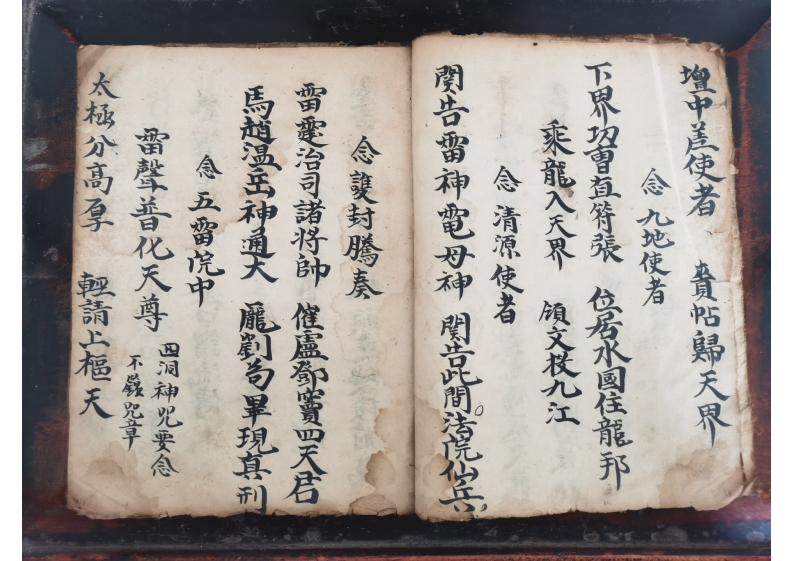 壇中差使者　賫帖歸天界
念九地使者
下界功曹直符張　位居水國住龍邦
乘龍入天界　領文投九江
念清源使者
関告雷神電母神　関告此間法院仙兵
念謢封騰奏
雷霆治司諸將帥　催盧鄧竇四天君
馬趙温岳神通大　龐劉茍畢現真刑
念五雷院中
雷聲普化天尊
四洞神咒要念
不　咒章
太極分高厚　輕請上樞天